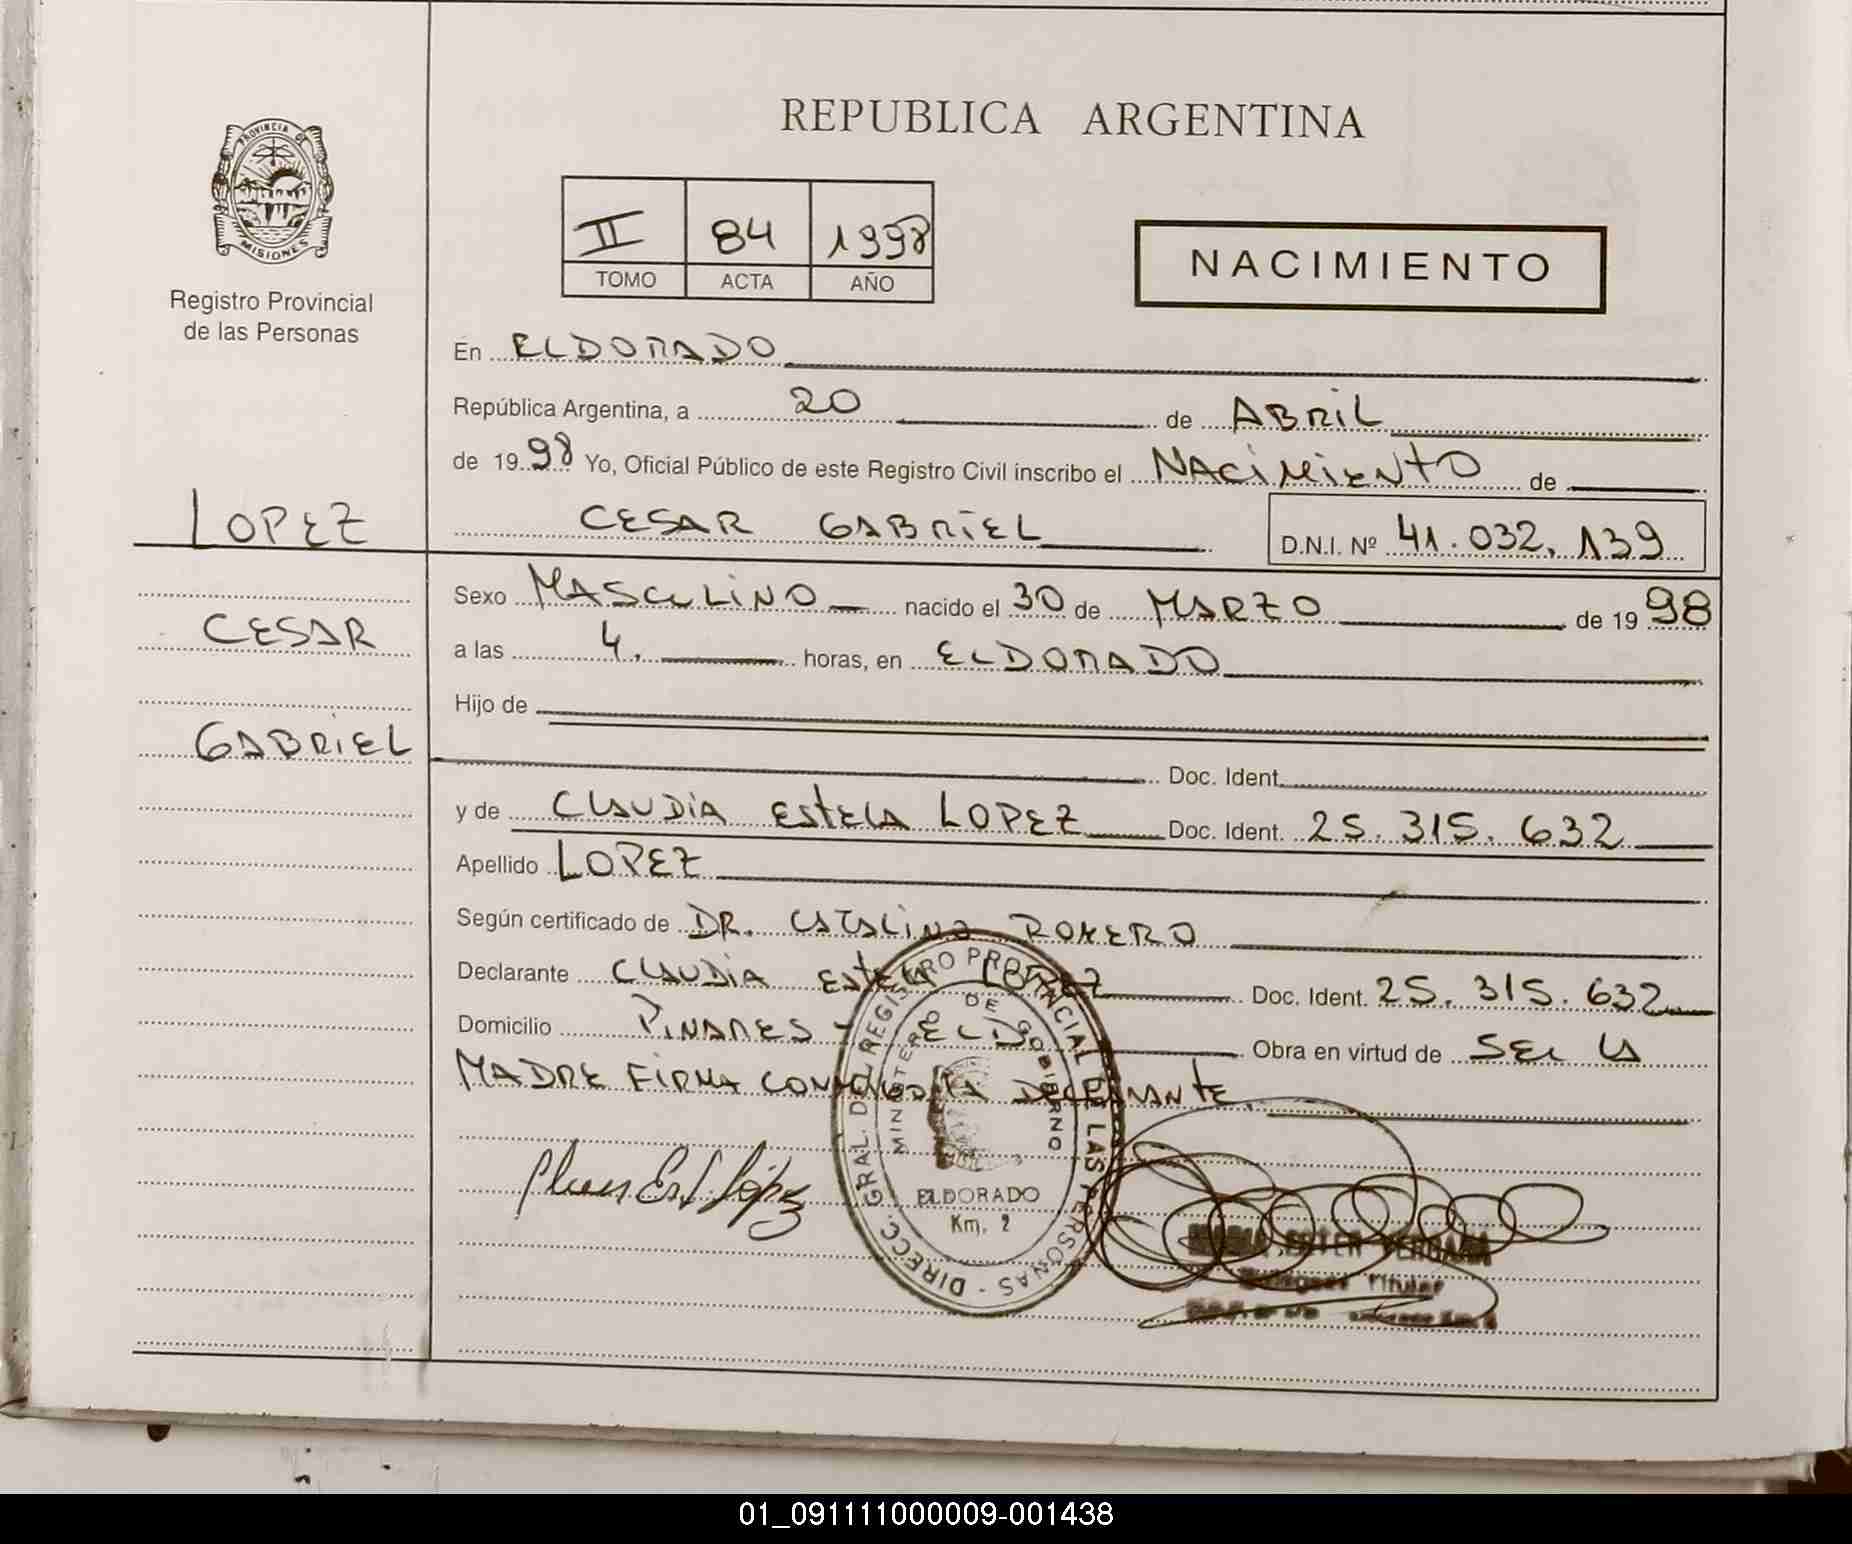 REPUBLICA ARGENTINA
PROVINCIA DE
MISIONES
Registro Provincial
de las Personas
II 84 1998
TOMO ACTA AÑO
NACIMIENTO
En ELDORADO
República Argentina, a 20 de ABRIL
de 1998 Yo, Oficial Público de este Registro Civil inscribo el NACIMIENTO de
LOPEZ
CESAR GABRIEL D.N.I. Nº 41.032.139
CESAR
GABRIEL
Sexo MASCULINO nacido el 30 de MARZO de 1998
a las 4. horas, en ELDORADO
Hijo de
Doc. Ident.
y de CLAUDIA ESTELA LOPEZ Doc. Ident. 25.315.632
Apellido LOPEZ
Según certificado de DR. CATALINO ROMERO
Declarante CLAUDIA ESTELA LOPEZ Doc. Ident. 25.315.632
Domicilio PINARES - ELDO Obra en virtud de SER LA
MADRE FIRMA COMO DECLARANTE.
DIRECC. GRAL. DEL REGISTRO PROVINCIAL DE LAS PERSONAS -
MINISTERIO DE GOBIERNO
ELDORADO
Km. 2
López
ESTER VERGARA
Titular
01_091111000009-001438